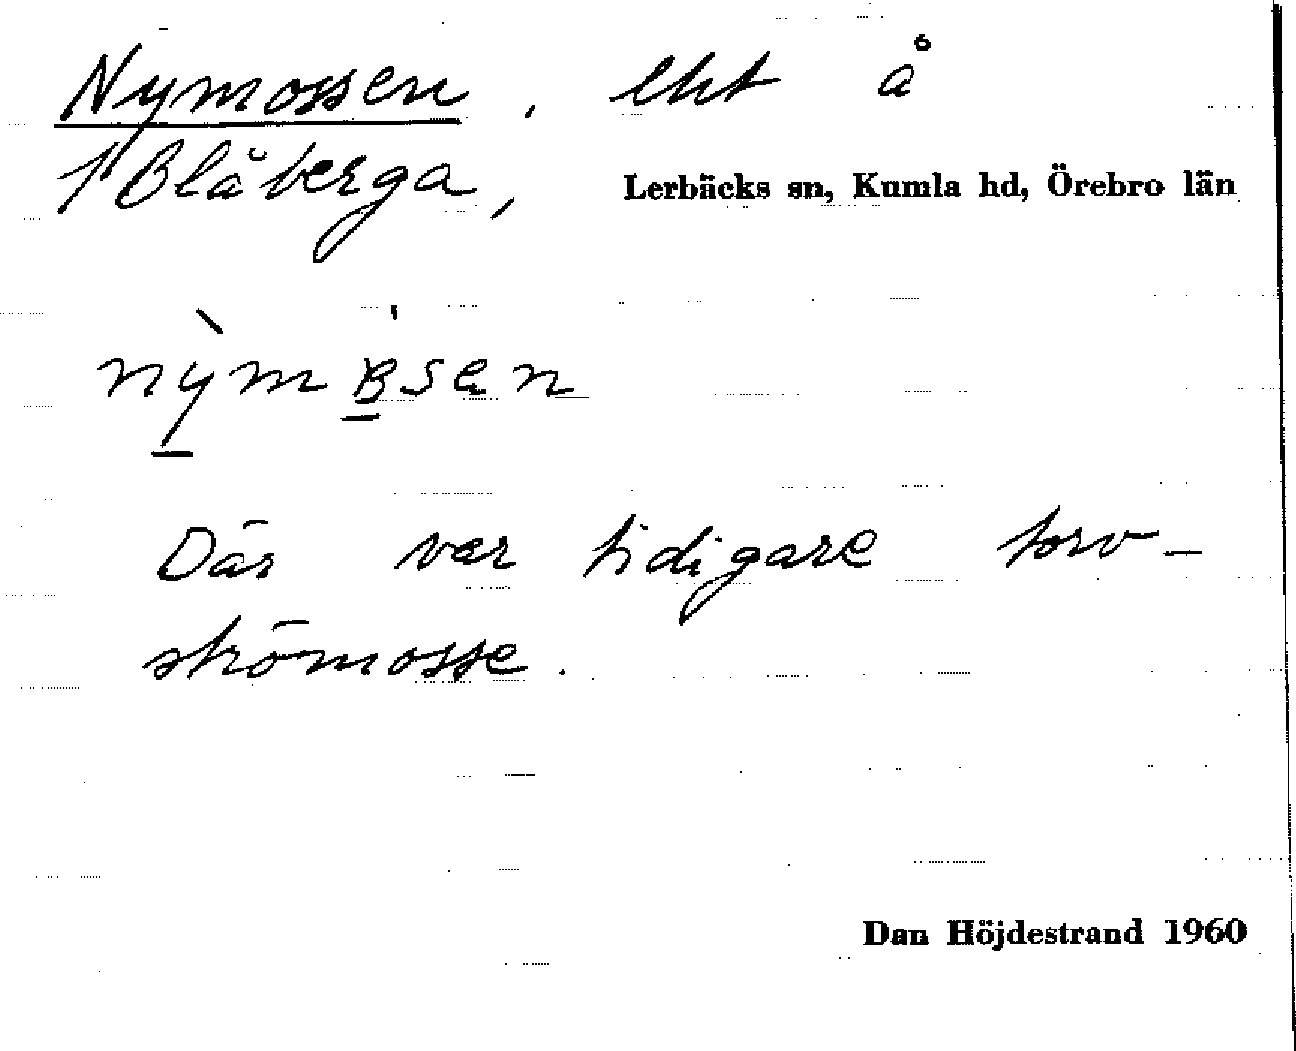 Nymossen, eht å
1 Blåberga, Lerbäcks sn, Kumla hd, Örebro län
Där var tidigare torv-
strömosse.
Dan Höjdestrand 1960